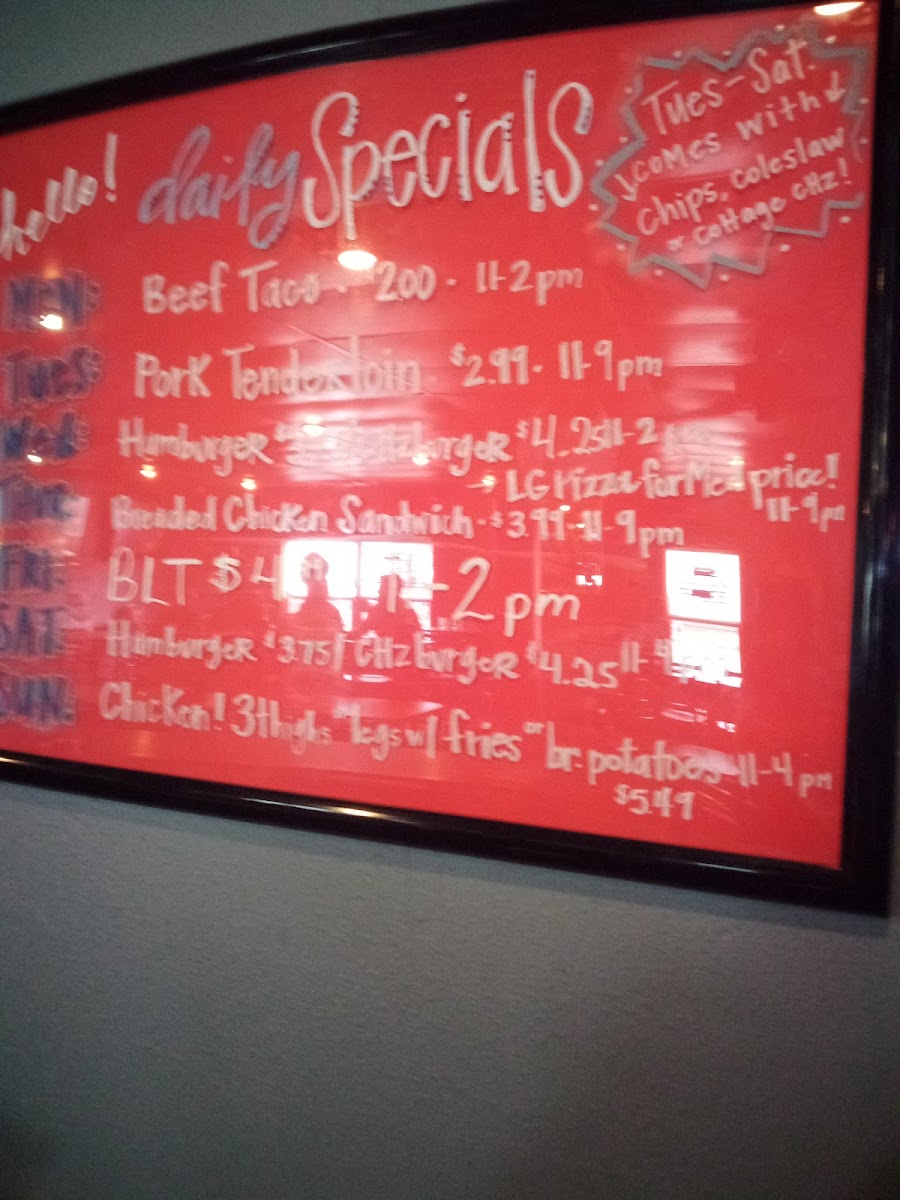 hello! daily Specials
Tues-Sat.
comes with
chips, coleslaw
or cottage CHz!
MON: Beef Taco · 2.00 · 11-2pm
Tues: Pork Tenderloin · $2.99 · 11-9pm
Wed: Hamburger $4.25 11-2
→ LG Pizza for Med price!
11-9pm
Breaded Chicken Sandwich · $3.99 · 11-9pm
FRI: BLT $4 -2pm
SAT: Hamburger $3.75 / CHzburger $4.25 11-4
SUN: Chicken! 3 thighs or legs w/ fries or br. potatoes 11-4pm
$5.49